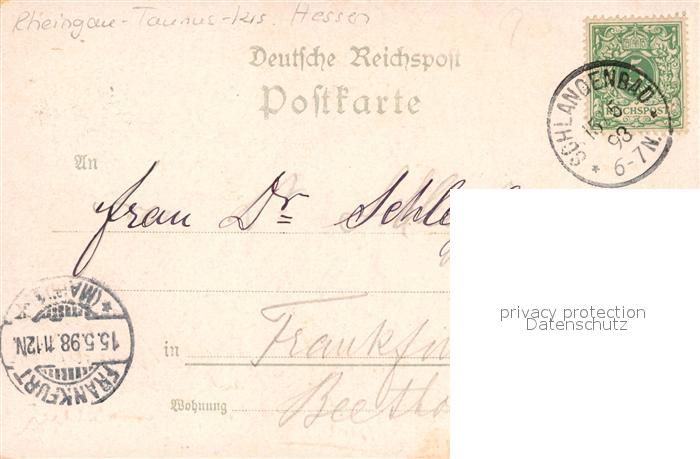 Rheingau-Taunus-Krs. Hessen
Deutsche Reichspost
Postkarte
5
REICHSPOST
SCHLANGENBAD
15 5
98
* 6-7N.
An
Frau Dr. Schle
privacy protection
Datenschutz
FRANKFURT
15.5.98. 11-12N.
* (MAIN) 1.
in Frankfu
Wohnung Beetho